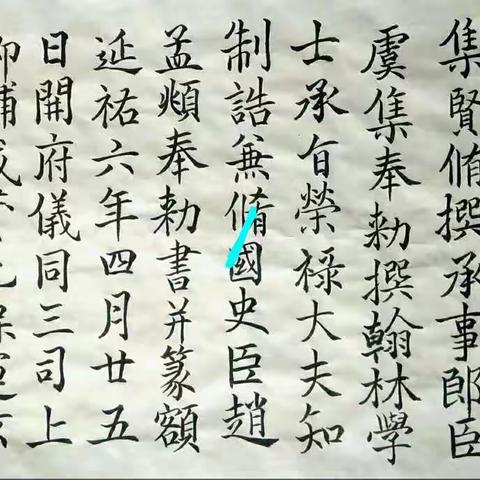 集賢脩撰承事郎臣
虞集奉勑撰翰林學
士承旨榮禄大夫知
制誥兼脩國史臣趙
孟頫奉勑書并篆額
延祐六年四月廿五
日開府儀同三司上